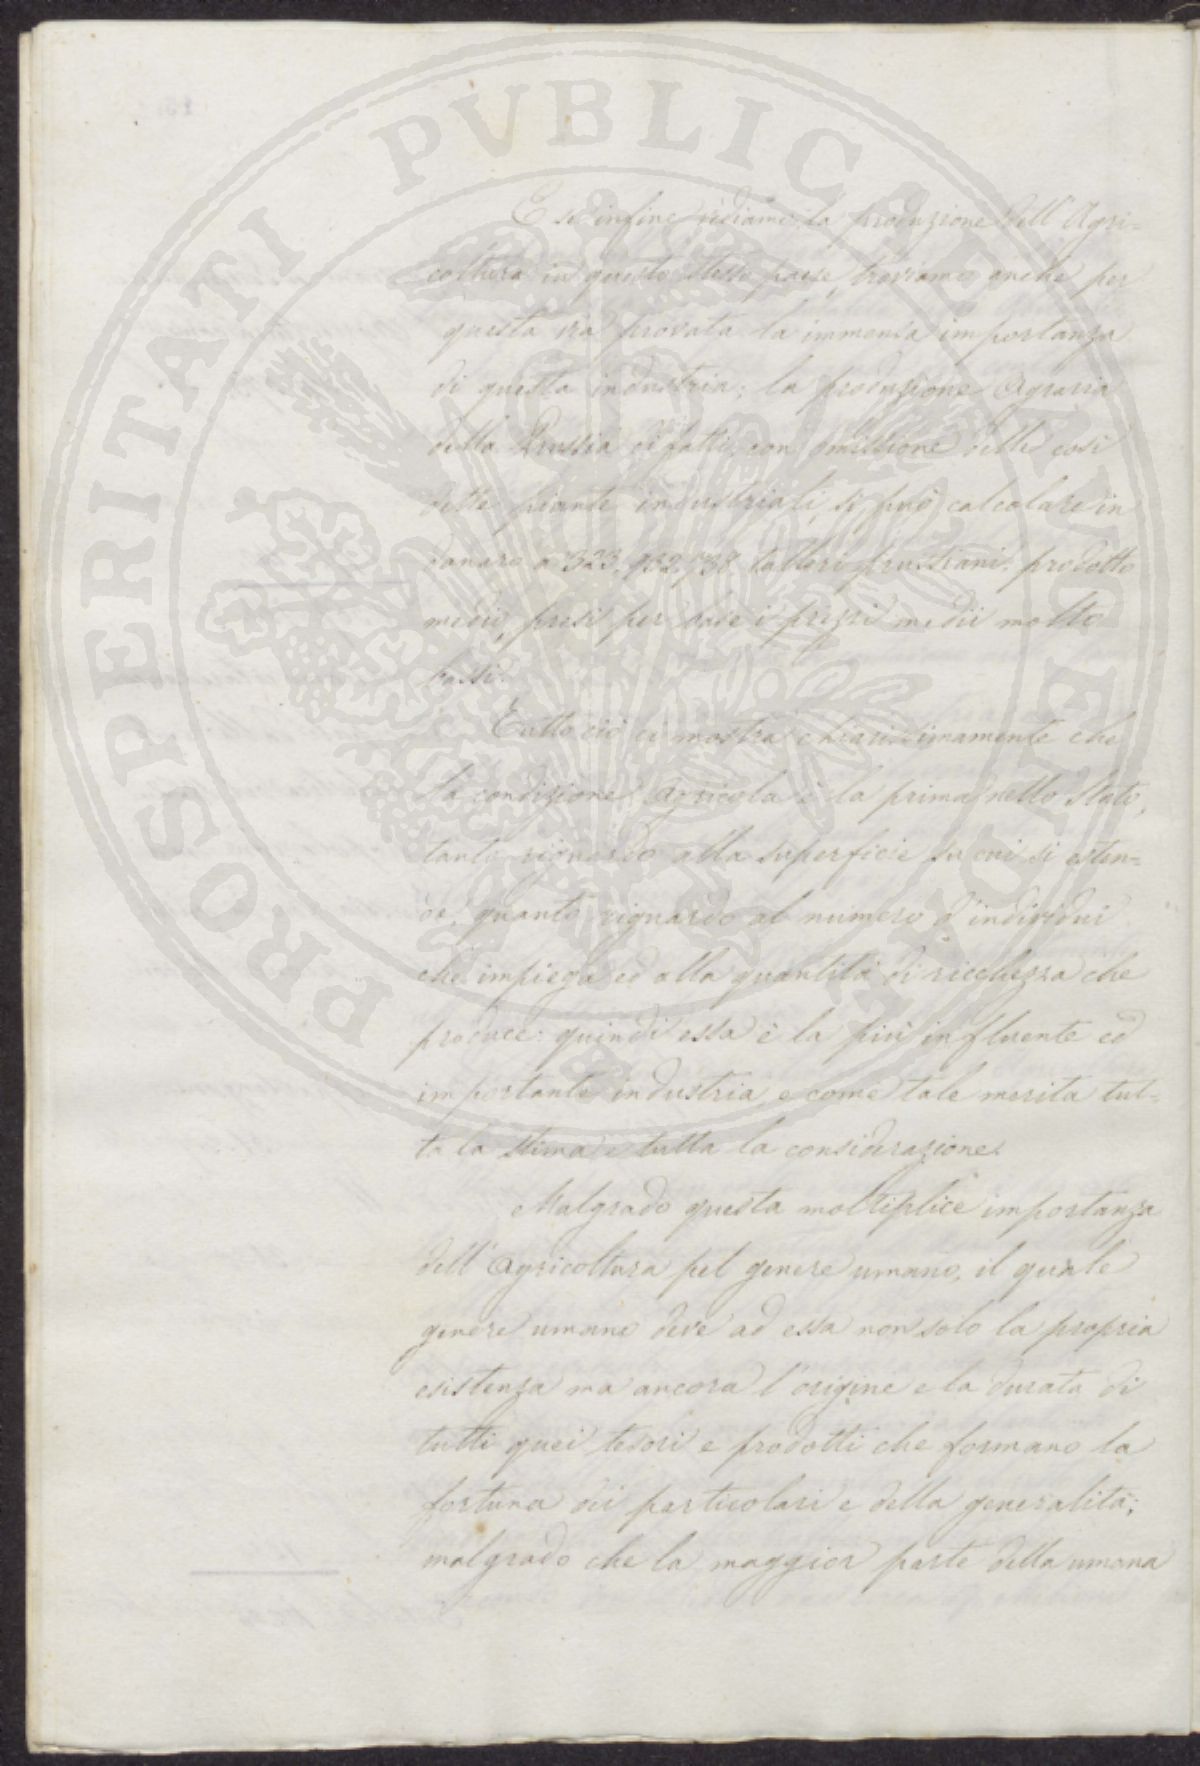 PROSPERITATI PVBLICAE AVGENDAE
E se infine vediamo la produzione dell'Agri=
coltura in questo stesso paese, troviamo anche per
questa via provata la immensa importanza
di questa industria; la produzione Agraria
della Prussia di fatti, con omissione delle così
dette piante industriali, si può calcolare in
danaro a 323,932,738 talleri prussiani, prodotto
medio, presi per base i prezzi medii molto
bassi.
Tutto ciò ci mostra chiarissimamente che
la condizione Agricola è la prima nello Stato,
tanto riguardo alla superficie su cui si esten=
de, quanto riguardo al numero d'individui
che impiega ed alla quantità di ricchezza che
produce: quindi essa è la più influente ed
importante industria, e come tale merita tut=
ta la stima e tutta la considerazione.
Malgrado questa moltiplice importanza
dell'Agricoltura pel genere umano, il quale
genere umano deve ad essa non solo la propria
esistenza ma ancora l'origine e la durata di
tutti quei tesori e prodotti che formano la
fortuna dei particolari e della generalità;
malgrado che la maggior parte della umana